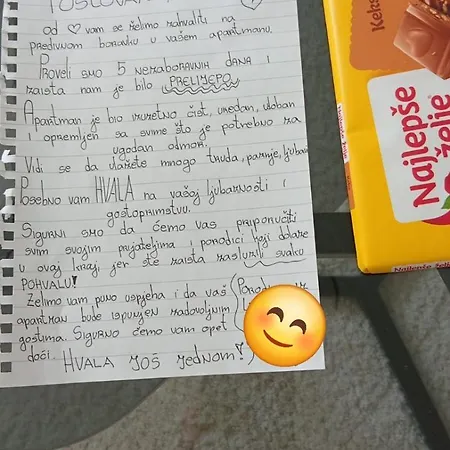 OD ♡ VAM SE ŽELIMO ZAHVALITI NA
PREDIVNOM BORAVKU U VAŠEM APARTMANU.
PROVELI SMO 5 NEZABORAVNIH DANA I
ZAISTA NAM JE BILO PRELIJEPO.
APARTMAN JE BIO IZUZETNO ČIST, UREDAN, UDOBAN
I OPREMLJEN SA SVIME ŠTO JE POTREBNO ZA
UGODAN ODMOR.
VIDI SE DA ULAŽETE MNOGO TRUDA, PAŽNJE, LJUBAVI
POSEBNO VAM HVALA NA VAŠOJ LJUBAZNOSTI I
GOSTOPRIMSTVU.
SIGURNI SMO DA ĆEMO VAS PRIPORUČITI
SVIM SVOJIM PRIJATELJIMA I PORODICI KOJI DOLAZE
U OVAJ KRAJ, JER STE ZAISTA ZASLUŽILI SVAKU
POHVALU!
ŽELIMO VAM PUNO USPJEHA I DA VAŠ
APARTMAN BUDE ISPUNJEN ZADOVOLJNIM
GOSTIMA. SIGURNO ĆEMO VAM OPET
DOĆI. HVALA JOŠ JEDNOM!
Najlepše
želje
Najlepše želje